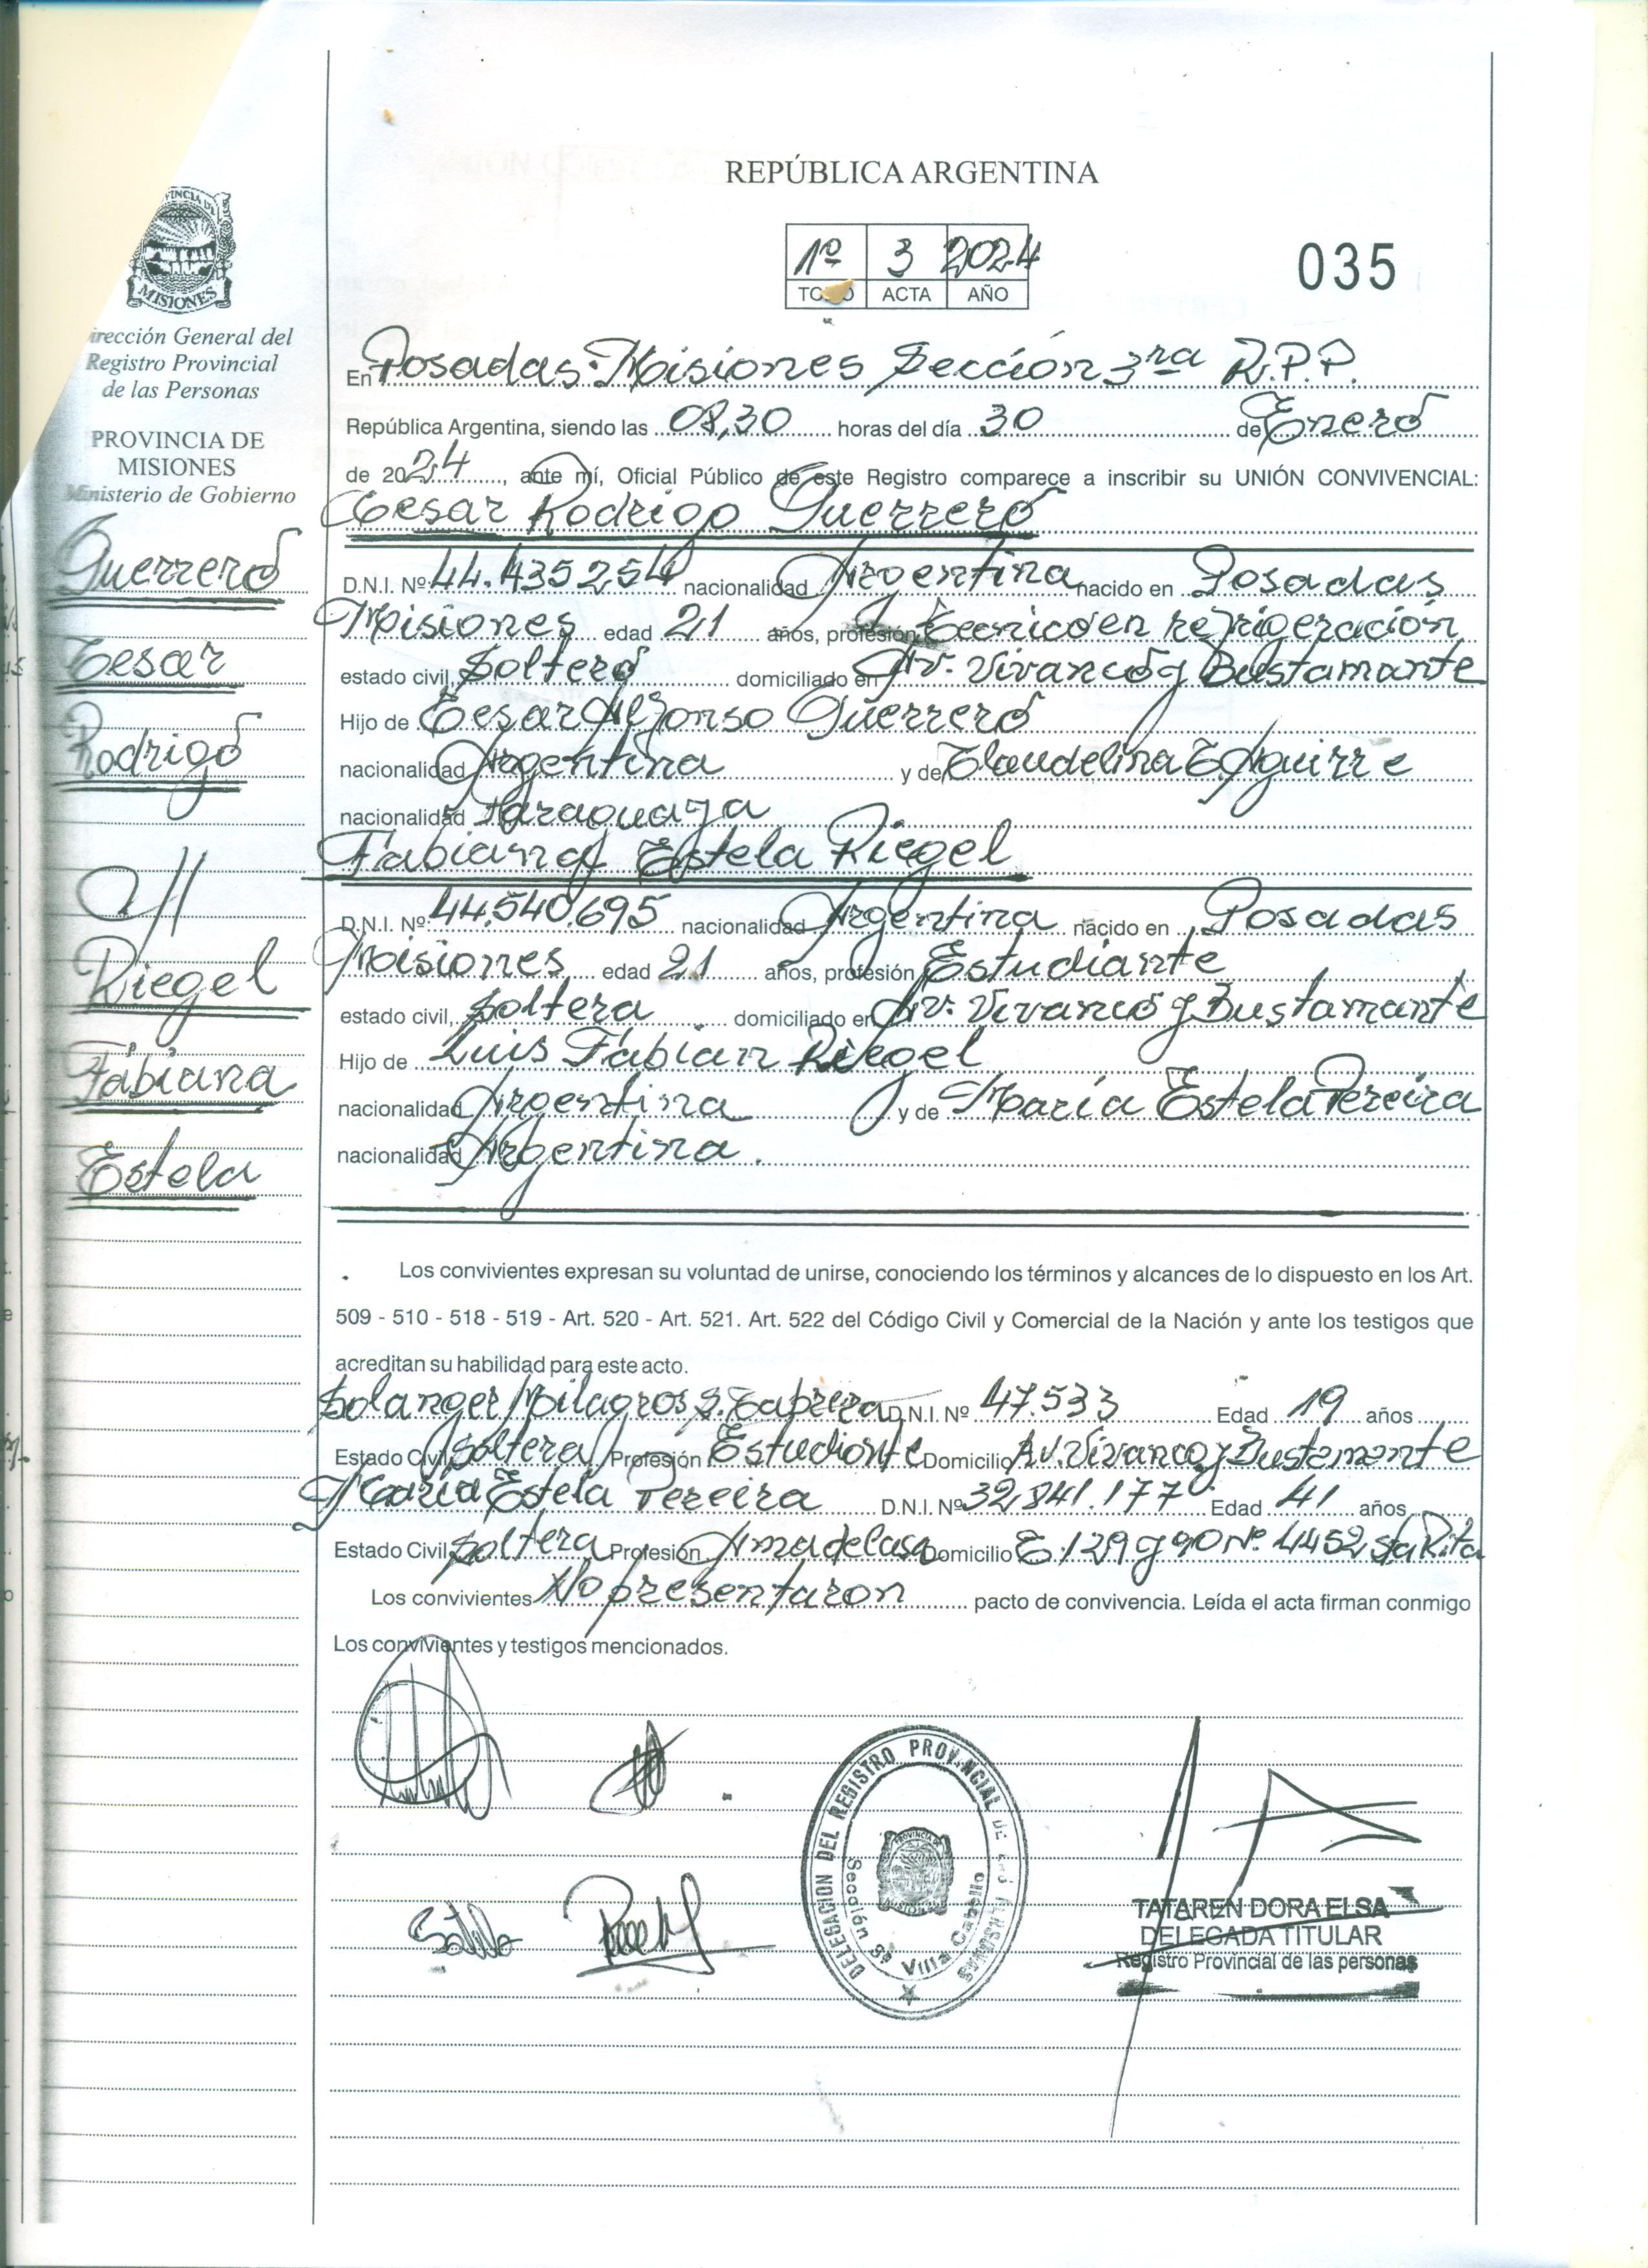 REPÚBLICA ARGENTINA
1º 3 2024
TOMO ACTA AÑO
035
PROVINCIA DE
MISIONES
irección General del
Registro Provincial
de las Personas
PROVINCIA DE
MISIONES
Ministerio de Gobierno
Guerrero
Cesar
Rodrigo
Riegel
Fabiana
Estela
En Posadas-Misiones Sección 3ra R.P.P.
República Argentina, siendo las 08,30 horas del día 30 de Enero
de 2024, ante mí, Oficial Público de este Registro comparece a inscribir su UNIÓN CONVIVENCIAL:
Cesar Rodrigo Guerrero
D.N.I. Nº 44.435254 nacionalidad Argentina nacido en Posadas
Misiones edad 21 años, profesión tecnico en refrigeración
estado civil, Soltero domiciliado en Av. Vivanco y Bustamante
Hijo de Cesar Alfonso Guerrero
nacionalidad Argentina y de Claudelina E Aguirre
nacionalidad Paraguaya
Fabiana Estela Riegel
D.N.I. Nº 44.540.695 nacionalidad Argentina nacido en Posadas
Misiones edad 21 años, profesión Estudiante
estado civil, Soltera domiciliado en Av. Vivanco y Bustamante
Hijo de Luis Fabian Riegel
nacionalidad Argentina y de María Estela Pereira
nacionalidad Argentina.
Los convivientes expresan su voluntad de unirse, conociendo los términos y alcances de lo dispuesto en los Art.
509 - 510 - 518 - 519 - Art. 520 - Art. 521. Art. 522 del Código Civil y Comercial de la Nación y ante los testigos que
acreditan su habilidad para este acto.
Solange Milagros S. Cabrera D.N.I. Nº 47.533 Edad 19 años
Estado Civil Soltera Profesión Estudiante Domicilio Av. Vivanco y Bustamante
María Estela Pereira D.N.I. Nº 32.841.177 Edad 41 años
Estado Civil Soltera Profesión Ama de Casa Domicilio C. 129 y 90 Nº 4452 Sta Rita
Los convivientes No presentaron pacto de convivencia. Leída el acta firman conmigo
Los convivientes y testigos mencionados.
DELEGACION DEL REGISTRO PROVINCIAL DE LAS PERSONAS
Sección 3ª Villa Cabello
TATAREN DORA ELSA
DELEGADA TITULAR
Registro Provincial de las personas